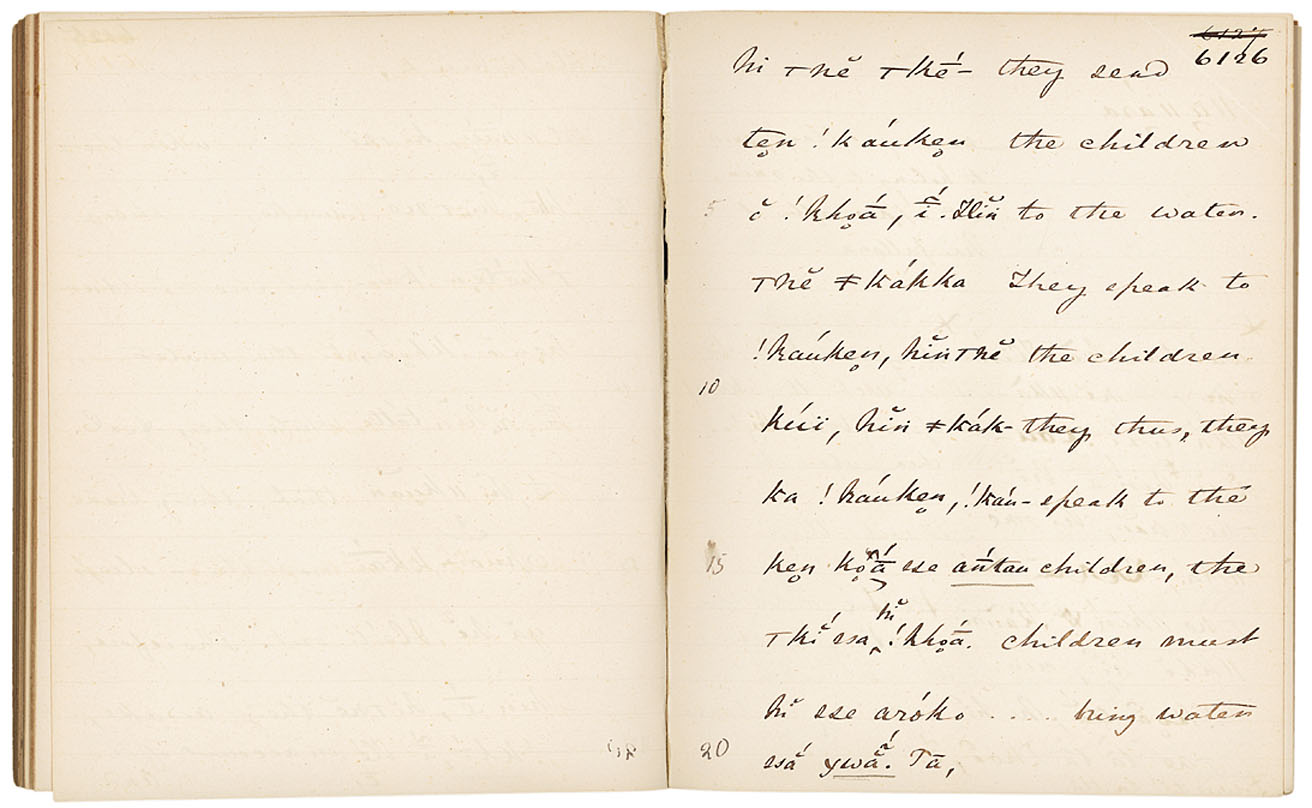 6126
hĭ ⊤nĕ ⊤ké- they send
te̥n !káuke̥n the children
ŏ !kho̥ā́, to the water.
⊤nĕ ǂkákka They speak to
!káuke̥n, hĭn⊤nĕ the children
kúï, hĭn ǂkák- they thus, they
ka !káuke̥n, !káu- speak to the
ke̥n ko̥ā́ sse áńtau children, the
⊤kĭ́ ssa hĭ !kho̥ā́. children must
hĭ sse arókо .... bring water
ssắ ywắ. Tā,
5
10
15
20